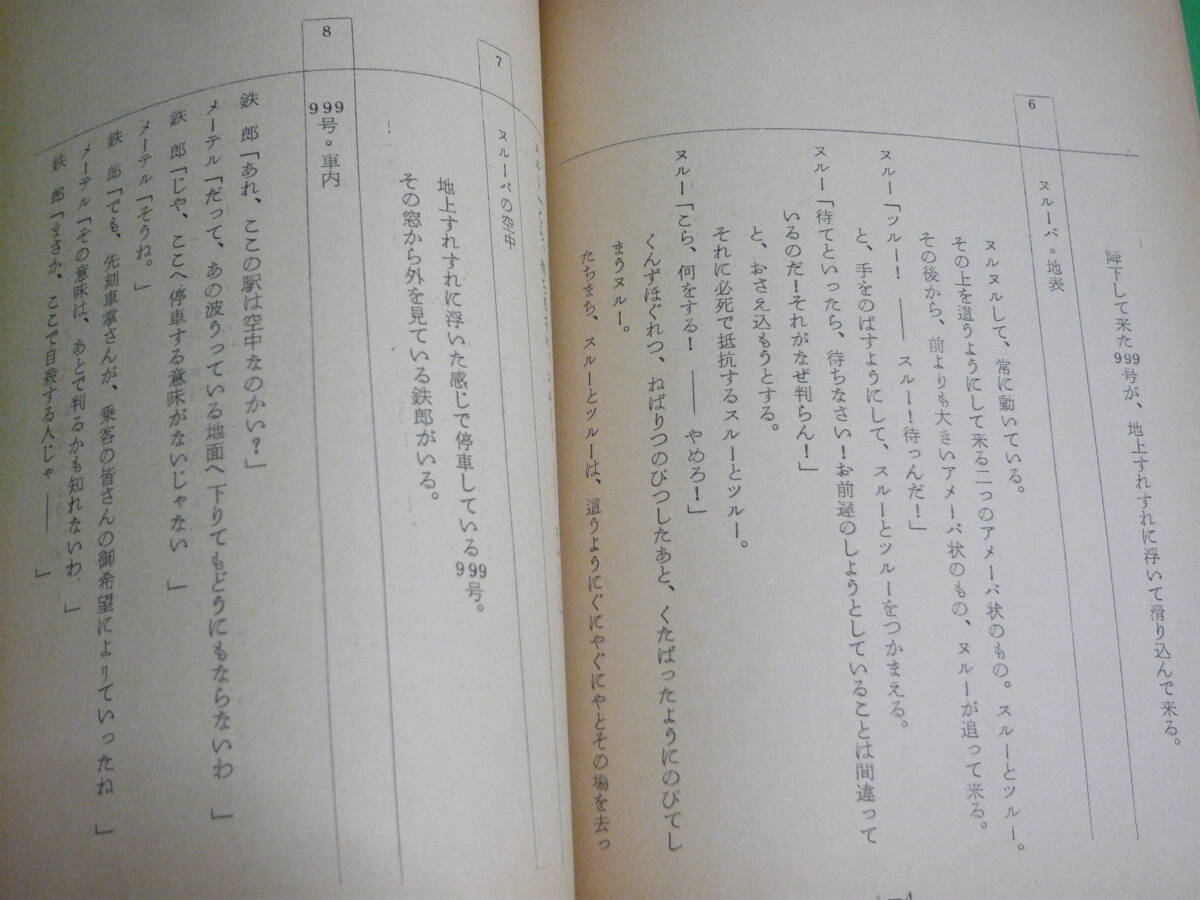 降下して来た999号が、地上すれすれに浮いて滑り込んで来る。
6
ヌルーバ・地表
ヌルヌルして、常に動いている。
その上を這うようにして来る二つのアメーバ状のもの。スルーとツルー。
その後から、前よりも大きいアメーバ状のもの、ヌルーが追って来る。
ヌルー「ツルー！――スルー！待っんだ！」
と、手をのばすようにして、スルーとツルーをつかまえる。
ヌルー「待てといったら、待ちなさい！お前達のしようとしていることは間違って
いるのだ！それがなぜ判らん！」
と、おさえ込もうとする。
それに必死で抵抗するスルーとツルー。
ヌルー「こら、何をする！――やめろ！」
くんずほぐれつ、ねばりつのびつしたあと、くたばったようにのびてし
まうヌルー。
たちまち、スルーとツルーは、這うようにぐにゃぐにゃとその場を去っ
7
ヌルーバの空中
地上すれすれに浮いた感じで停車している999号。
その窓から外を見ている鉄郎がいる。
8
999号・車内
鉄郎「あれ、ここの駅は空中なのかい？」
メーテル「だって、あの波うっている地面へ下りてもどうにもならないわ」
鉄郎「じゃ、ここへ停車する意味がないじゃない」
メーテル「そうね。」
鉄郎「でも、先刻車掌さんが、乗客の皆さんの御希望によりていったね」
メーテル「その意味は、あとで判るかも知れないわ」
鉄郎「まさか、ここで自殺する人じゃ――」